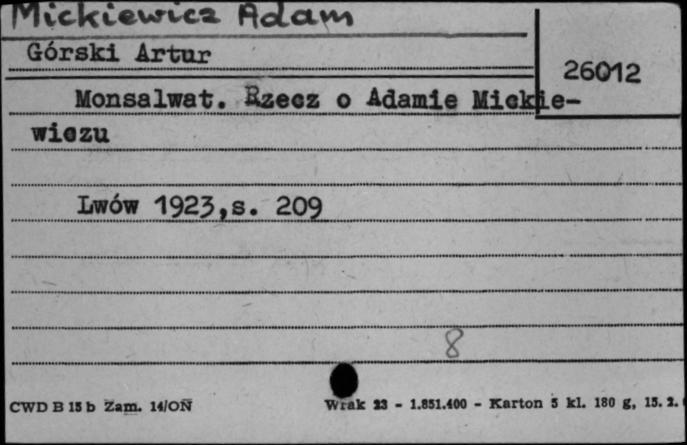 Mickiewicz Adam
Górski Artur
26012
Monsalwat. Rzecz o Adamie Mickie-
wiczu
Lwów 1923,s. 209
8
CWD B 15 b Zam. 14/ON Wrak 23 - 1.851.400 - Karton 5 kl. 180 g, 15. 2.